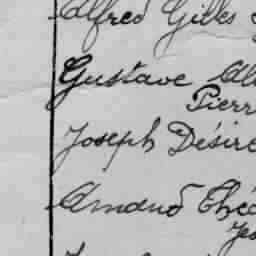 Alfred Gilles
Gustave Al
Pierr
Joseph Désiré
Amand Théo